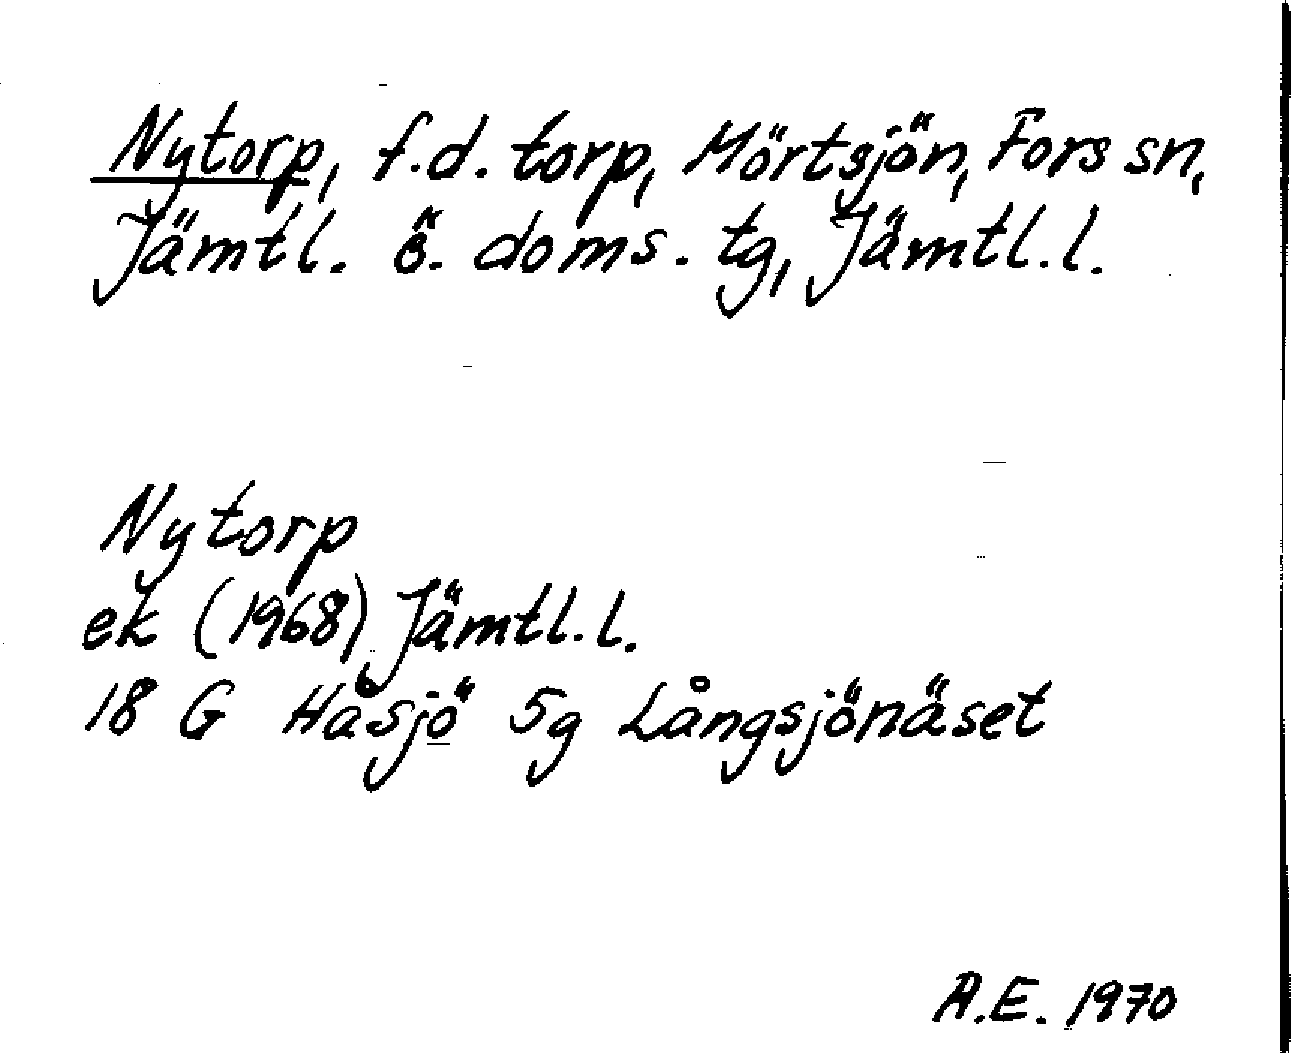 Nytorp, f.d. torp, Mörtsjön, Fors sn,
Jämtl. ö. doms. tg, Jämtl. l.
Nytorp
ek (1968) Jämtl. l.
18 G Håsjö 5g Långsjönäset
A.E. 1970